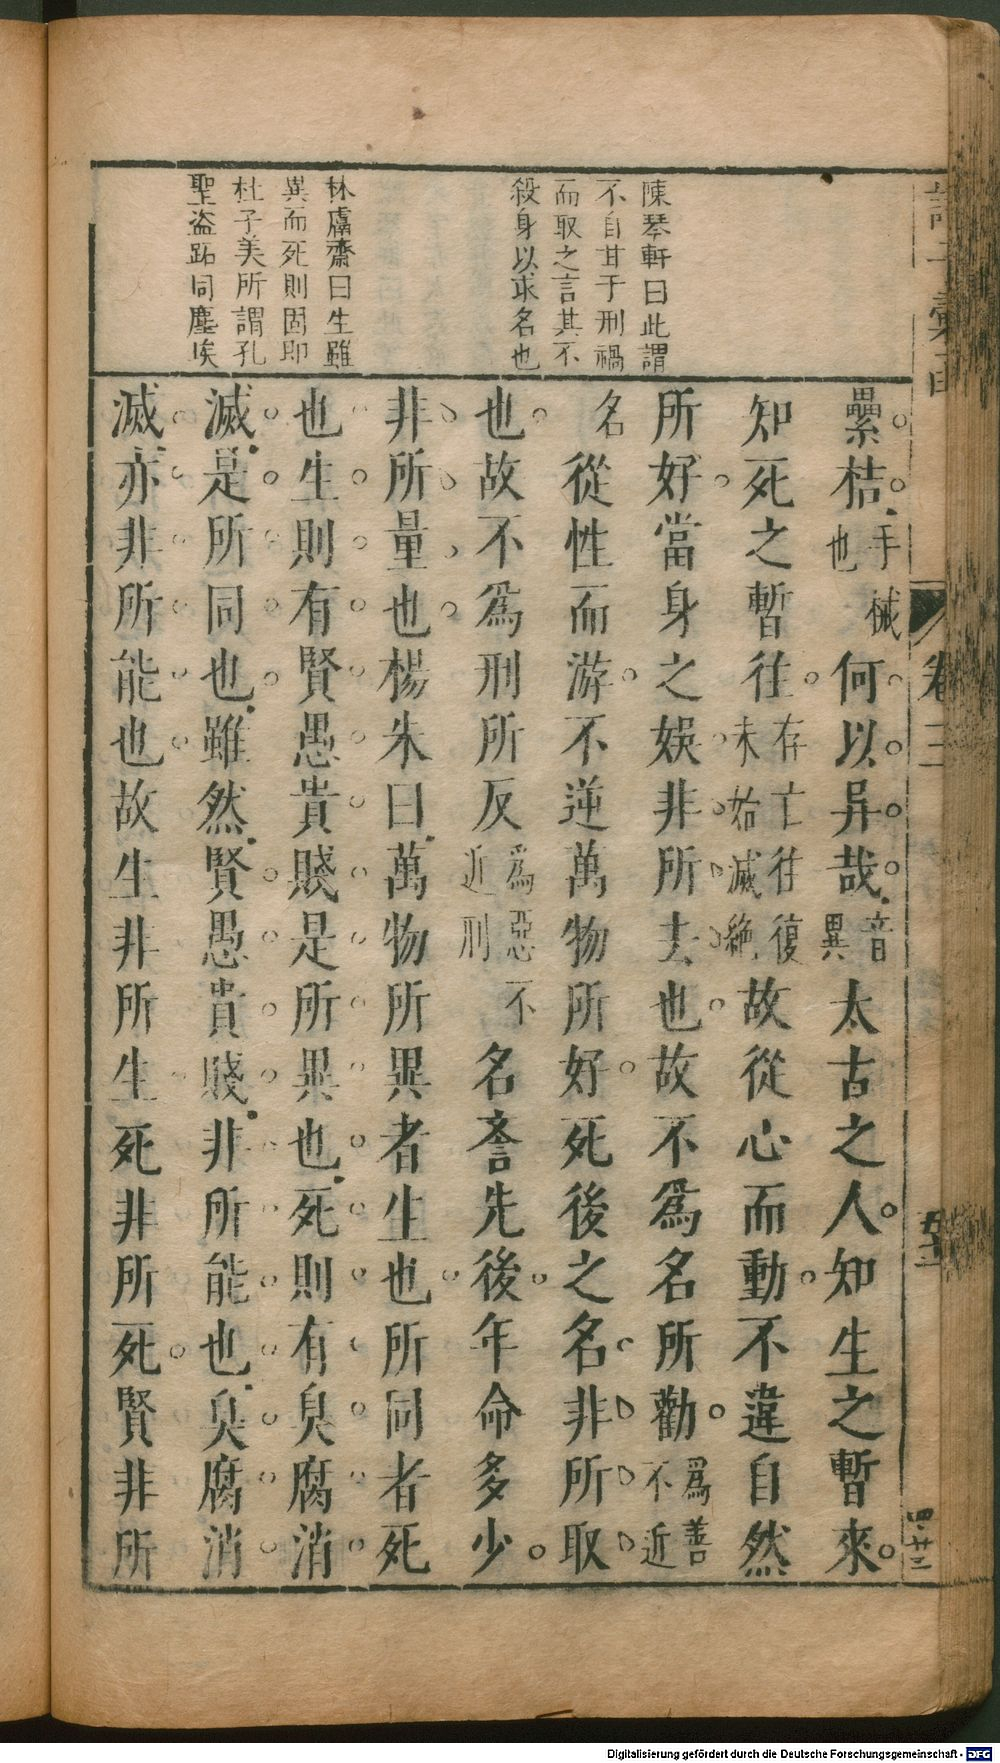 陳琴軒曰此謂
不自甘于刑禍
而取之言其不
殺身以求名也
林鬳齋曰生雖
異而死則固即
杜子美所謂孔
聖盗跖同塵埃
纍梏手械也何以异哉音異太古之人知生之暫來
知死之暫往存亡往復未始滅絶故從心而動不違自然
所好當身之娛非所去也故不爲名所勸爲善不近
名從性而游不逆萬物所好死後之名非所取
也故不爲刑所反爲惡不近刑名譽先後年命多少
非所量也楊朱曰萬物所異者生也所同者死
也生則有賢愚貴賤是所異也死則有臭腐消
滅是所同也雖然賢愚貴賤非所能也臭腐消
滅亦非所能也故生非所生死非所死賢非所
卷三
四廿三
Digitalisierung gefördert durch die Deutsche Forschungsgemeinschaft - DFG